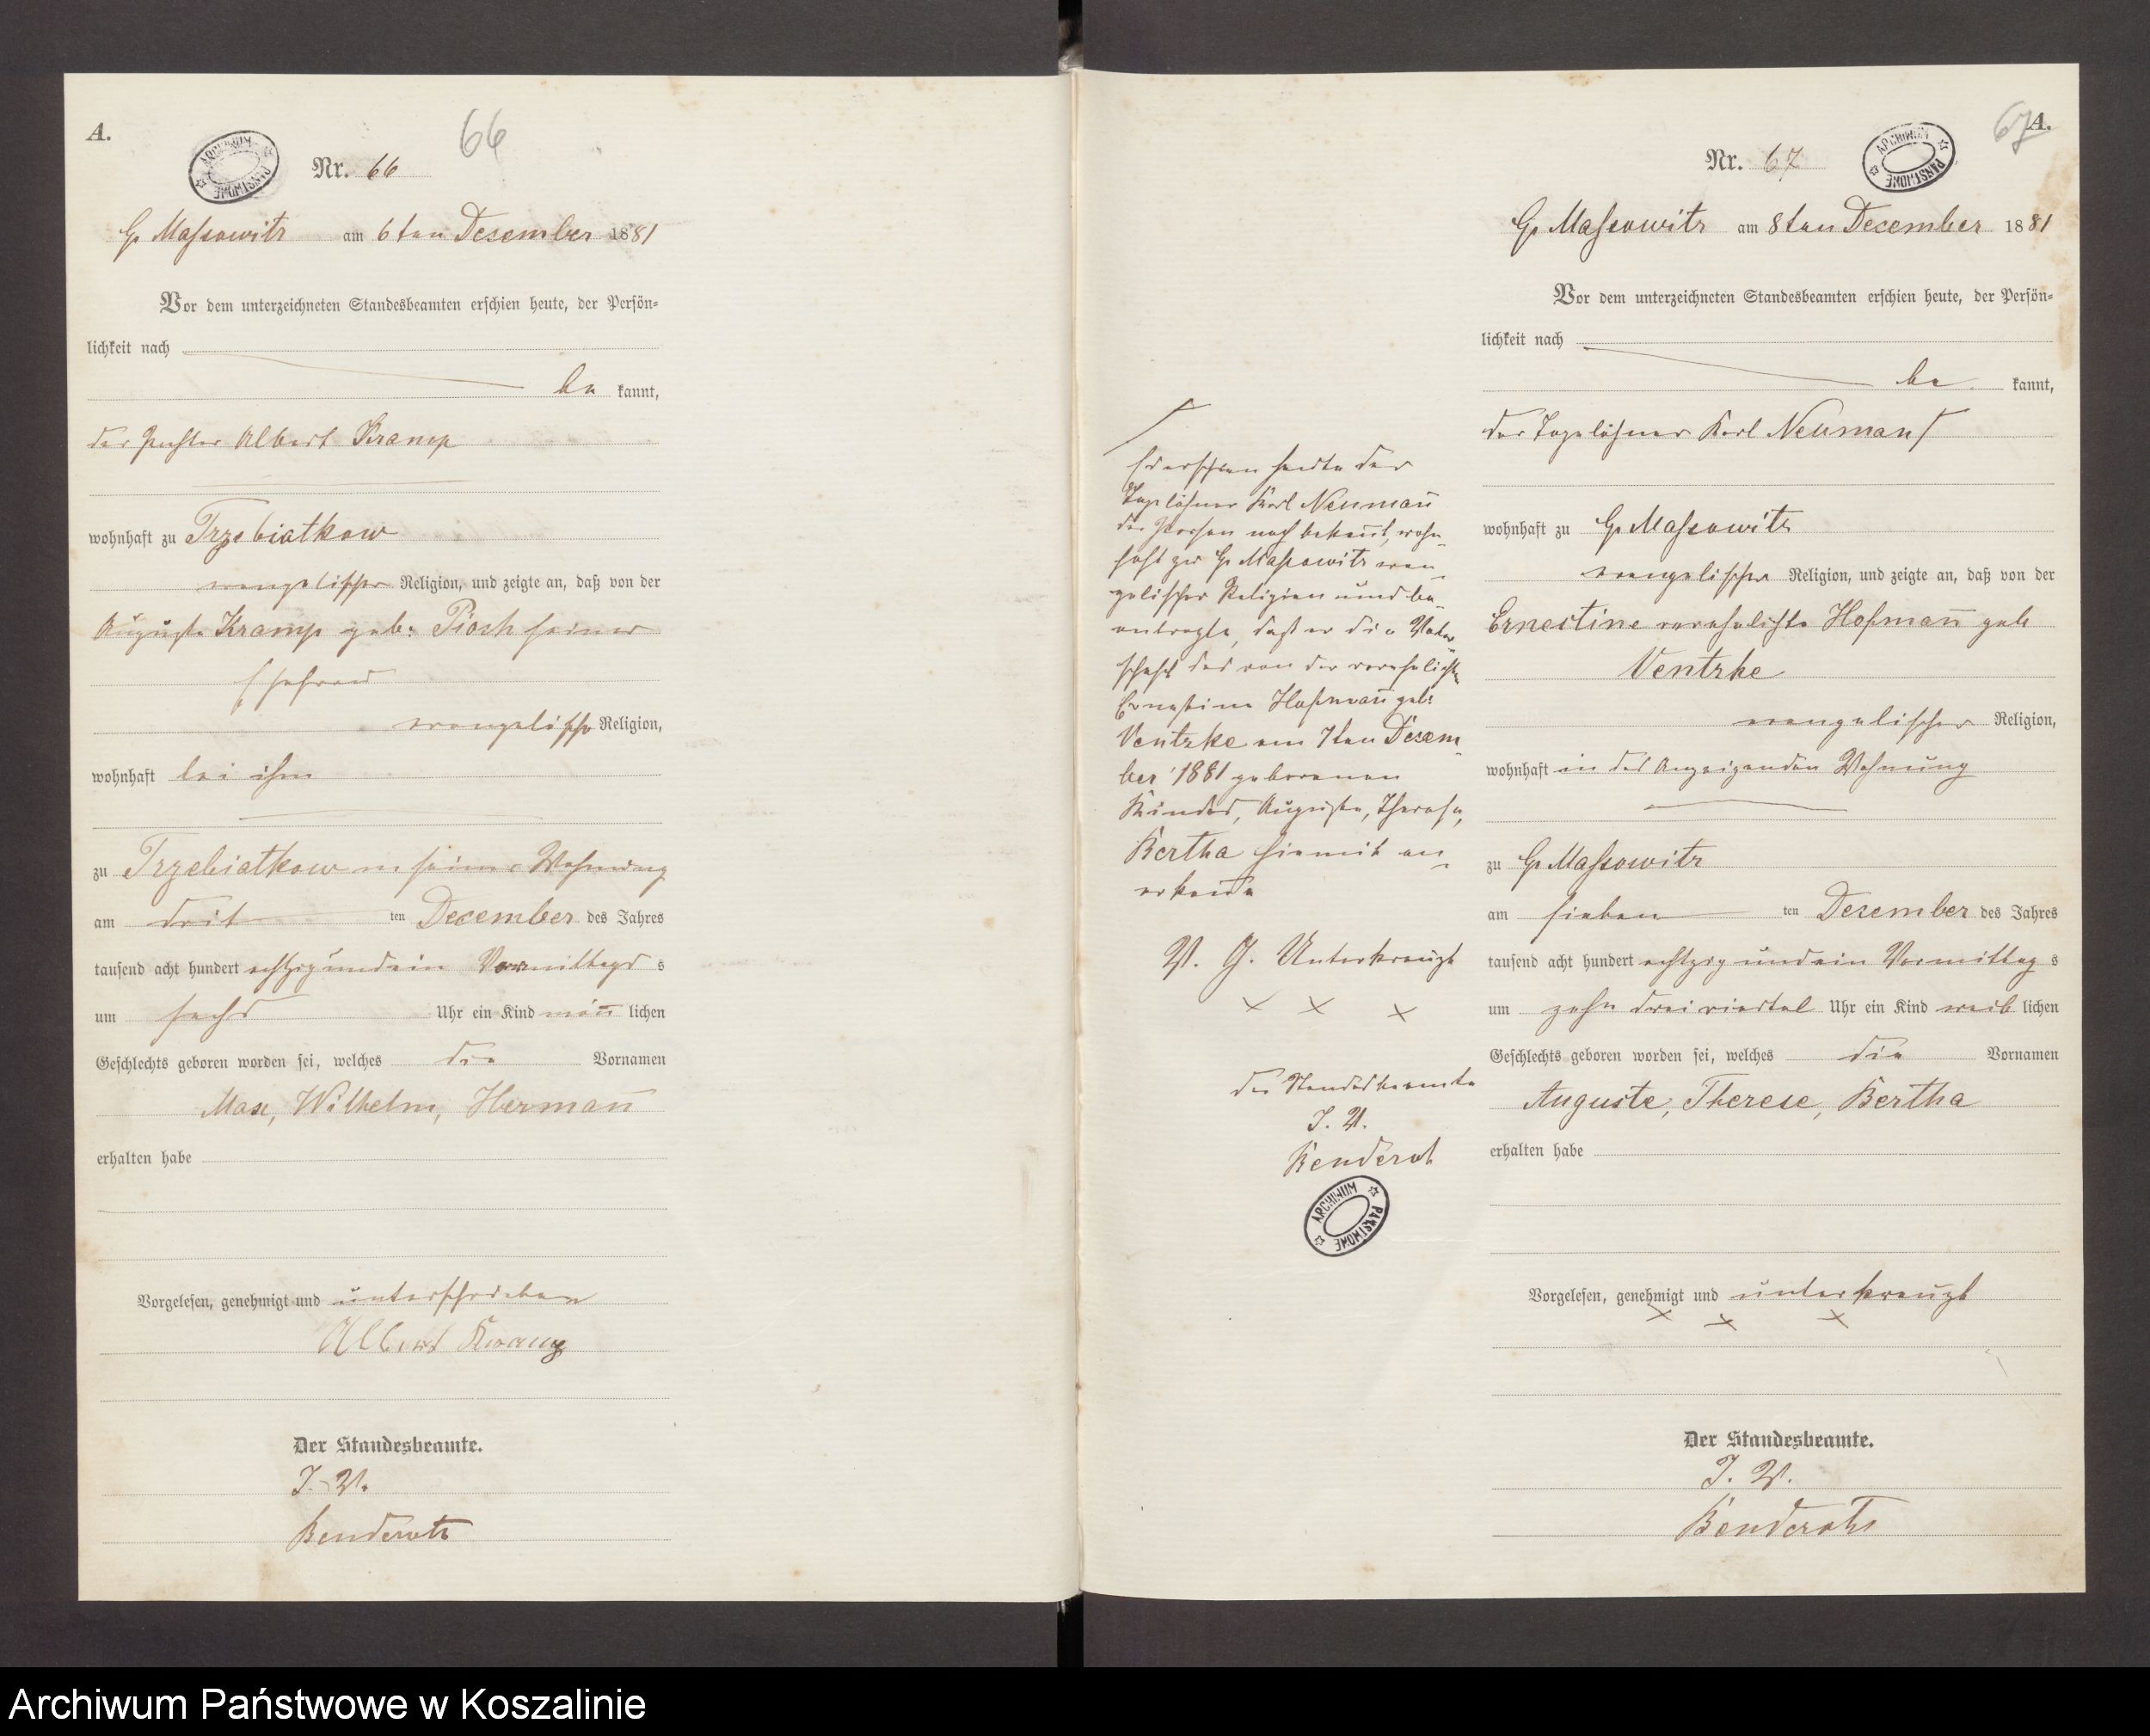 A.
66
ARCHIWUM PAŃSTWOWE
Nr. 66
Gr Massowitz am 6ten Dezember 1881
Vor dem unterzeichneten Standesbeamten erschien heute, der Persön=
lichkeit nach
be kannt,
der Albert Kramp
wohnhaft zu Trzebiatkow
evangelischer Religion, und zeigte an, daß von der
Auguste Kramp geb: Piosch seiner
Ehefrau
evangelischer Religion,
wohnhaft bei ihm
zu Trzebiatkow in seiner Wohnung
am drit ten December des Jahres
tausend acht hundert achtzig und ein Vormittags s
um sechs Uhr ein Kind män̄ lichen
Geschlechts geboren worden sei, welches die Vornamen
Max, Wilhelm, Herman̄
erhalten habe
Vorgelesen, genehmigt und unterschrieben
Albert Kramp
Der Standesbeamte.
I. V.
f
Es erschien heute der
Tagelöhner Karl Neuman̄
der Person nach bekan̄t, wohn-
haft zu Gr Massowitz evan-
gelischer Religion und be-
antragte, daß er die Vater
schaft des von der verehelichten
Ernestine Hofman̄ geb:
Ventzke am 7ten Dezem-
ber 1881 geborenen
Kindes, Auguste, Therese,
Bertha hiermit an-
erken̄e
V. G. Unterkreuzt
× × ×
der Standesbeamte
I. V.
ARCHIWUM PAŃSTWOWE
67
A.
Nr. 67
ARCHIWUM PAŃSTWOWE
Gr Massowitz am 8ten Dezember 1881
Vor dem unterzeichneten Standesbeamten erschien heute, der Persön=
lichkeit nach
be kannt,
der Tagelöhner Karl Neuman f
wohnhaft zu Gr Massowitz
evangelischer Religion, und zeigte an, daß von der
Ernestine verehelichte Hofman̄ geb
Ventzke
evangelischer Religion,
wohnhaft in des Anzeigenden Wohnung
zu Gr Massowitz
am sieben ten Dezember des Jahres
tausend acht hundert achtzig und ein Vormittag s
um zehn dreiviertel Uhr ein Kind weib lichen
Geschlechts geboren worden sei, welches die Vornamen
Auguste, Therese, Bertha
erhalten habe
Vorgelesen, genehmigt und unterkreuzt
× × ×
Der Standesbeamte.
I. V.
Archiwum Państwowe w Koszalinie